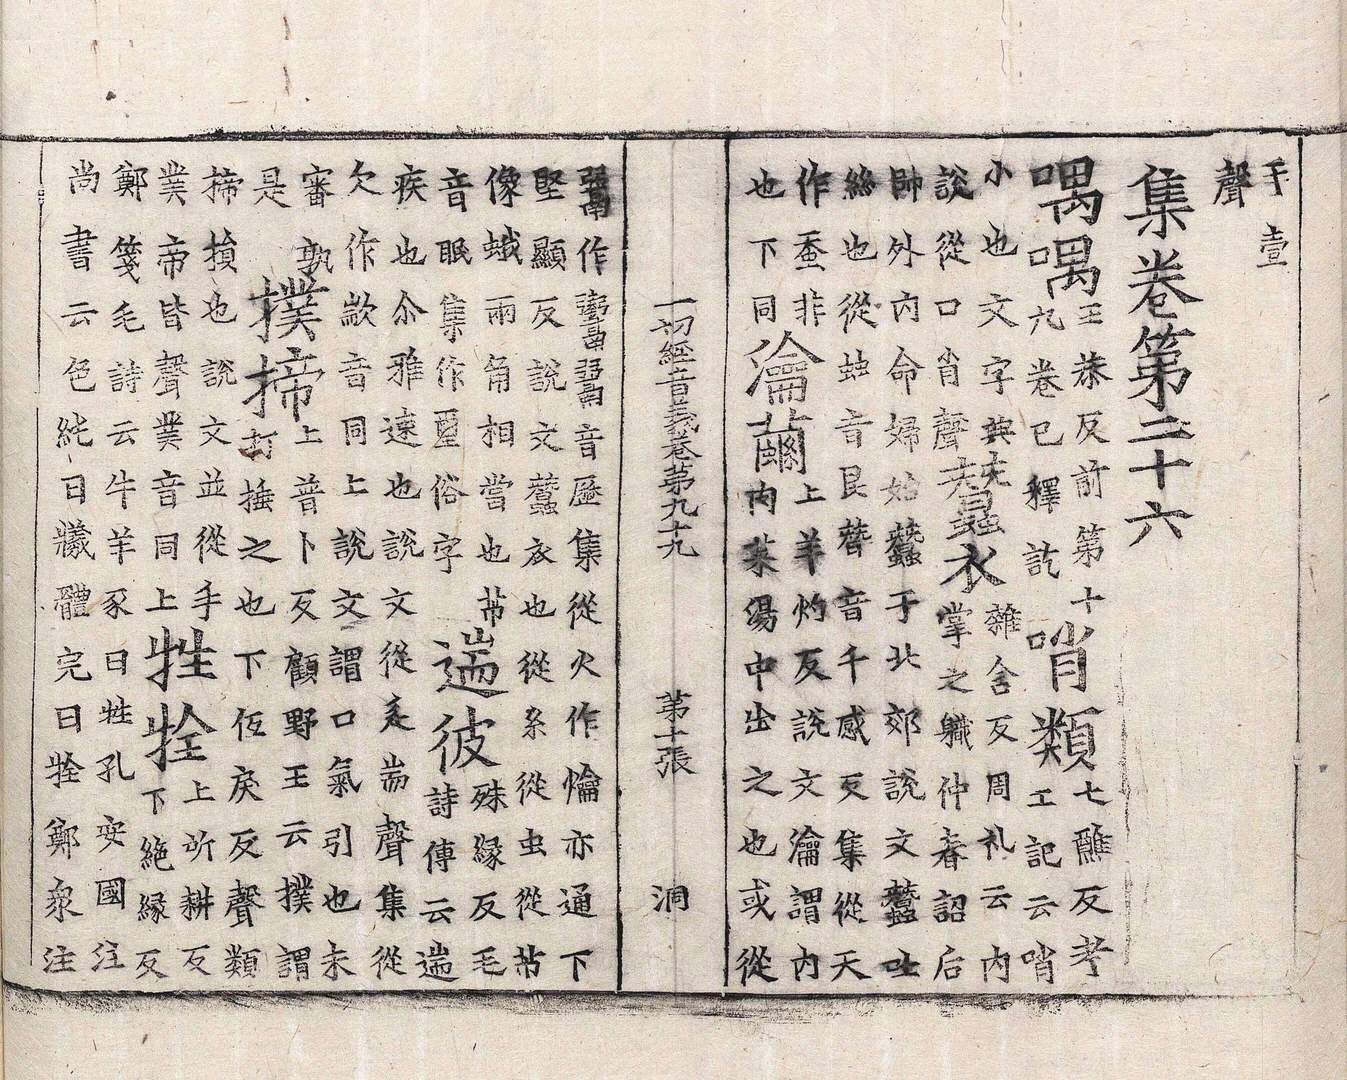 手壹
聲
集卷第二十六
喁喁王恭反前第十
九卷已釋訖
哨類七醮反考
工記云哨
小也文字典
說從口肖聲
蠶衣雜含反周礼云內
掌之職仲春詔后
帥外內命婦始蠶于北郊說文蠶吐
絲也從䖵音昆朁音千感反集從天
作蚕非
也下同
瀹繭上羊灼反說文瀹謂內
肉菜湯中出之也或從
一切經音義卷第九十九 第十張 洞
作音歷集從火作爚亦通下
堅顯反說文蠶衣也從糸從虫從芇
像蛾兩角相當也芇
音眠集作璽俗字
遄彼殊緣反毛
詩傳云遄
疾也尒雅速也說文從辵耑聲集從
欠作歂音同上說文謂口氣引也未
審孰
是
撲揥上普卜反顧野王云撲謂
打捶之也下佰戾反聲類
揥損也說文並從手
菐帝皆聲菐音同上
牲牷上所耕反
下絶緣反
鄭箋毛詩云牛羊豕曰牲孔安國注
尚書云色純曰犧體完曰牷鄭衆注